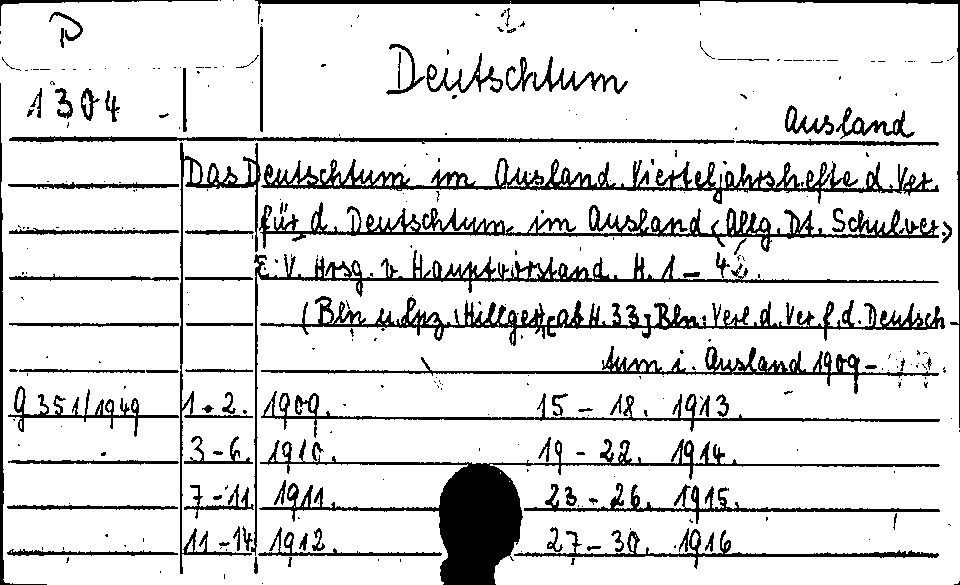 P
Deutschtum
1304
Ausland
Das Deutschtum im Ausland. Vierteljahrshefte d. Ver.
für d. Deutschtum im Ausland <Allg. Dt. Schulver>
E. V. Hrsg. v. Hauptvorstand. H. 1 - 42.
(Bln u. Lpz.: Hillger; [ab H. 33] Bln: Verl. d. Ver. f. d. Deutsch-
tum i. Ausland 1909 -
g 351/1949 1.2. 1909. 15 - 18. 1913.
3-6. 1910. 19 - 22. 1914.
7-11. 1911. 23 - 26. 1915.
11-14. 1912. 27 - 30. 1916